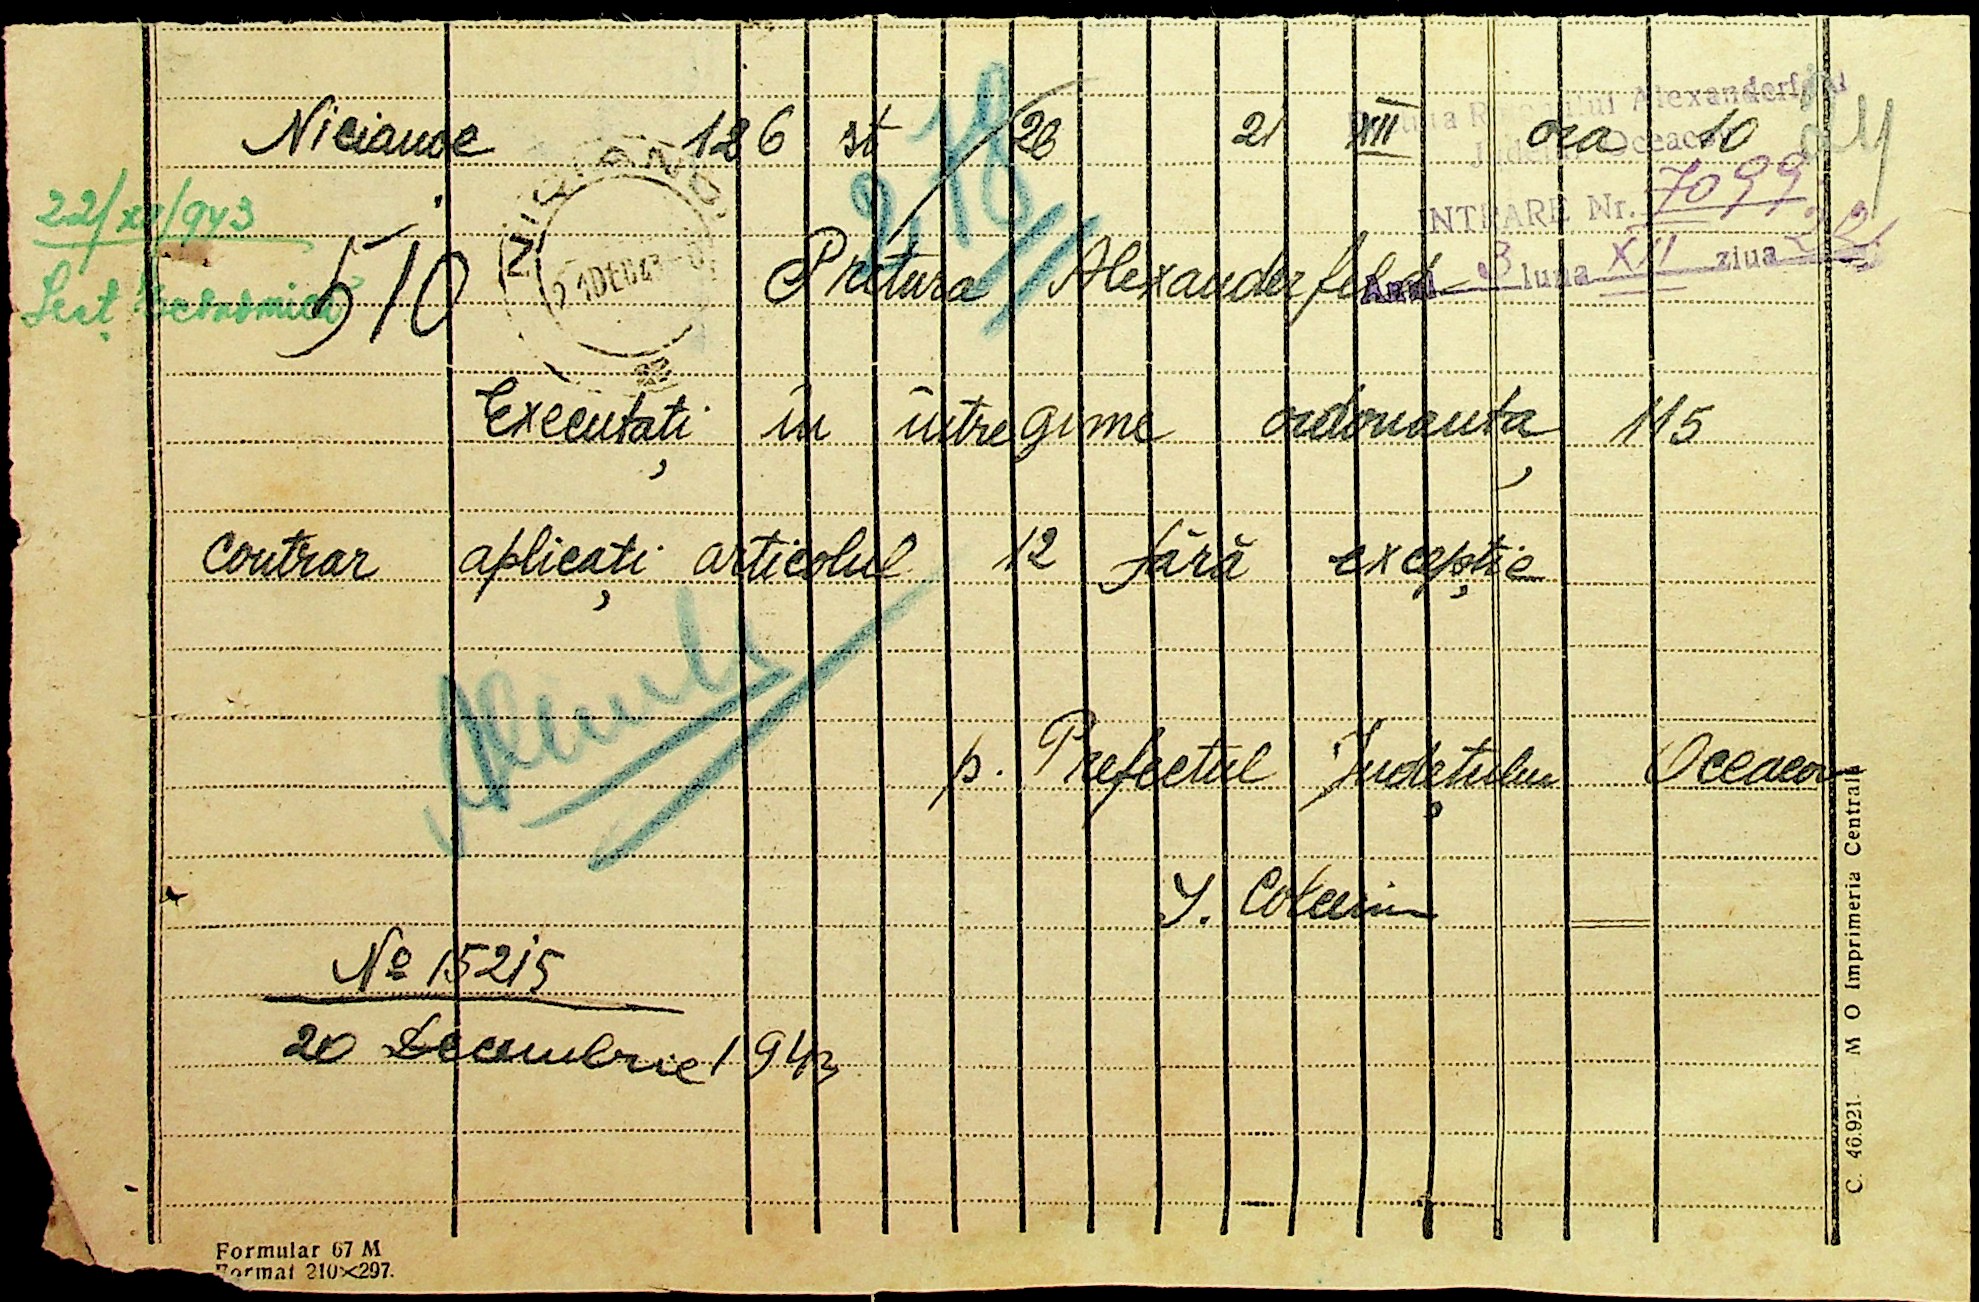 126 st 26 21 XII ora 10
Pretura Raionului Alexanderfeld
Județul Oceacov
INTRARE Nr. 7099
Anul 3 luna XII ziua 22
22/XII/943
Secț. Economică
510
218
Pretura Alexanderfeld
Executați în întregime ordonanța 115
contrar aplicați articolul 12 fără excepție
p. Prefectul Județului Oceacov
Nº 15215
20 Decembrie 1943
Formular 67 M
Format 210×297.
C. 46.921. M O Imprimeria Centrală